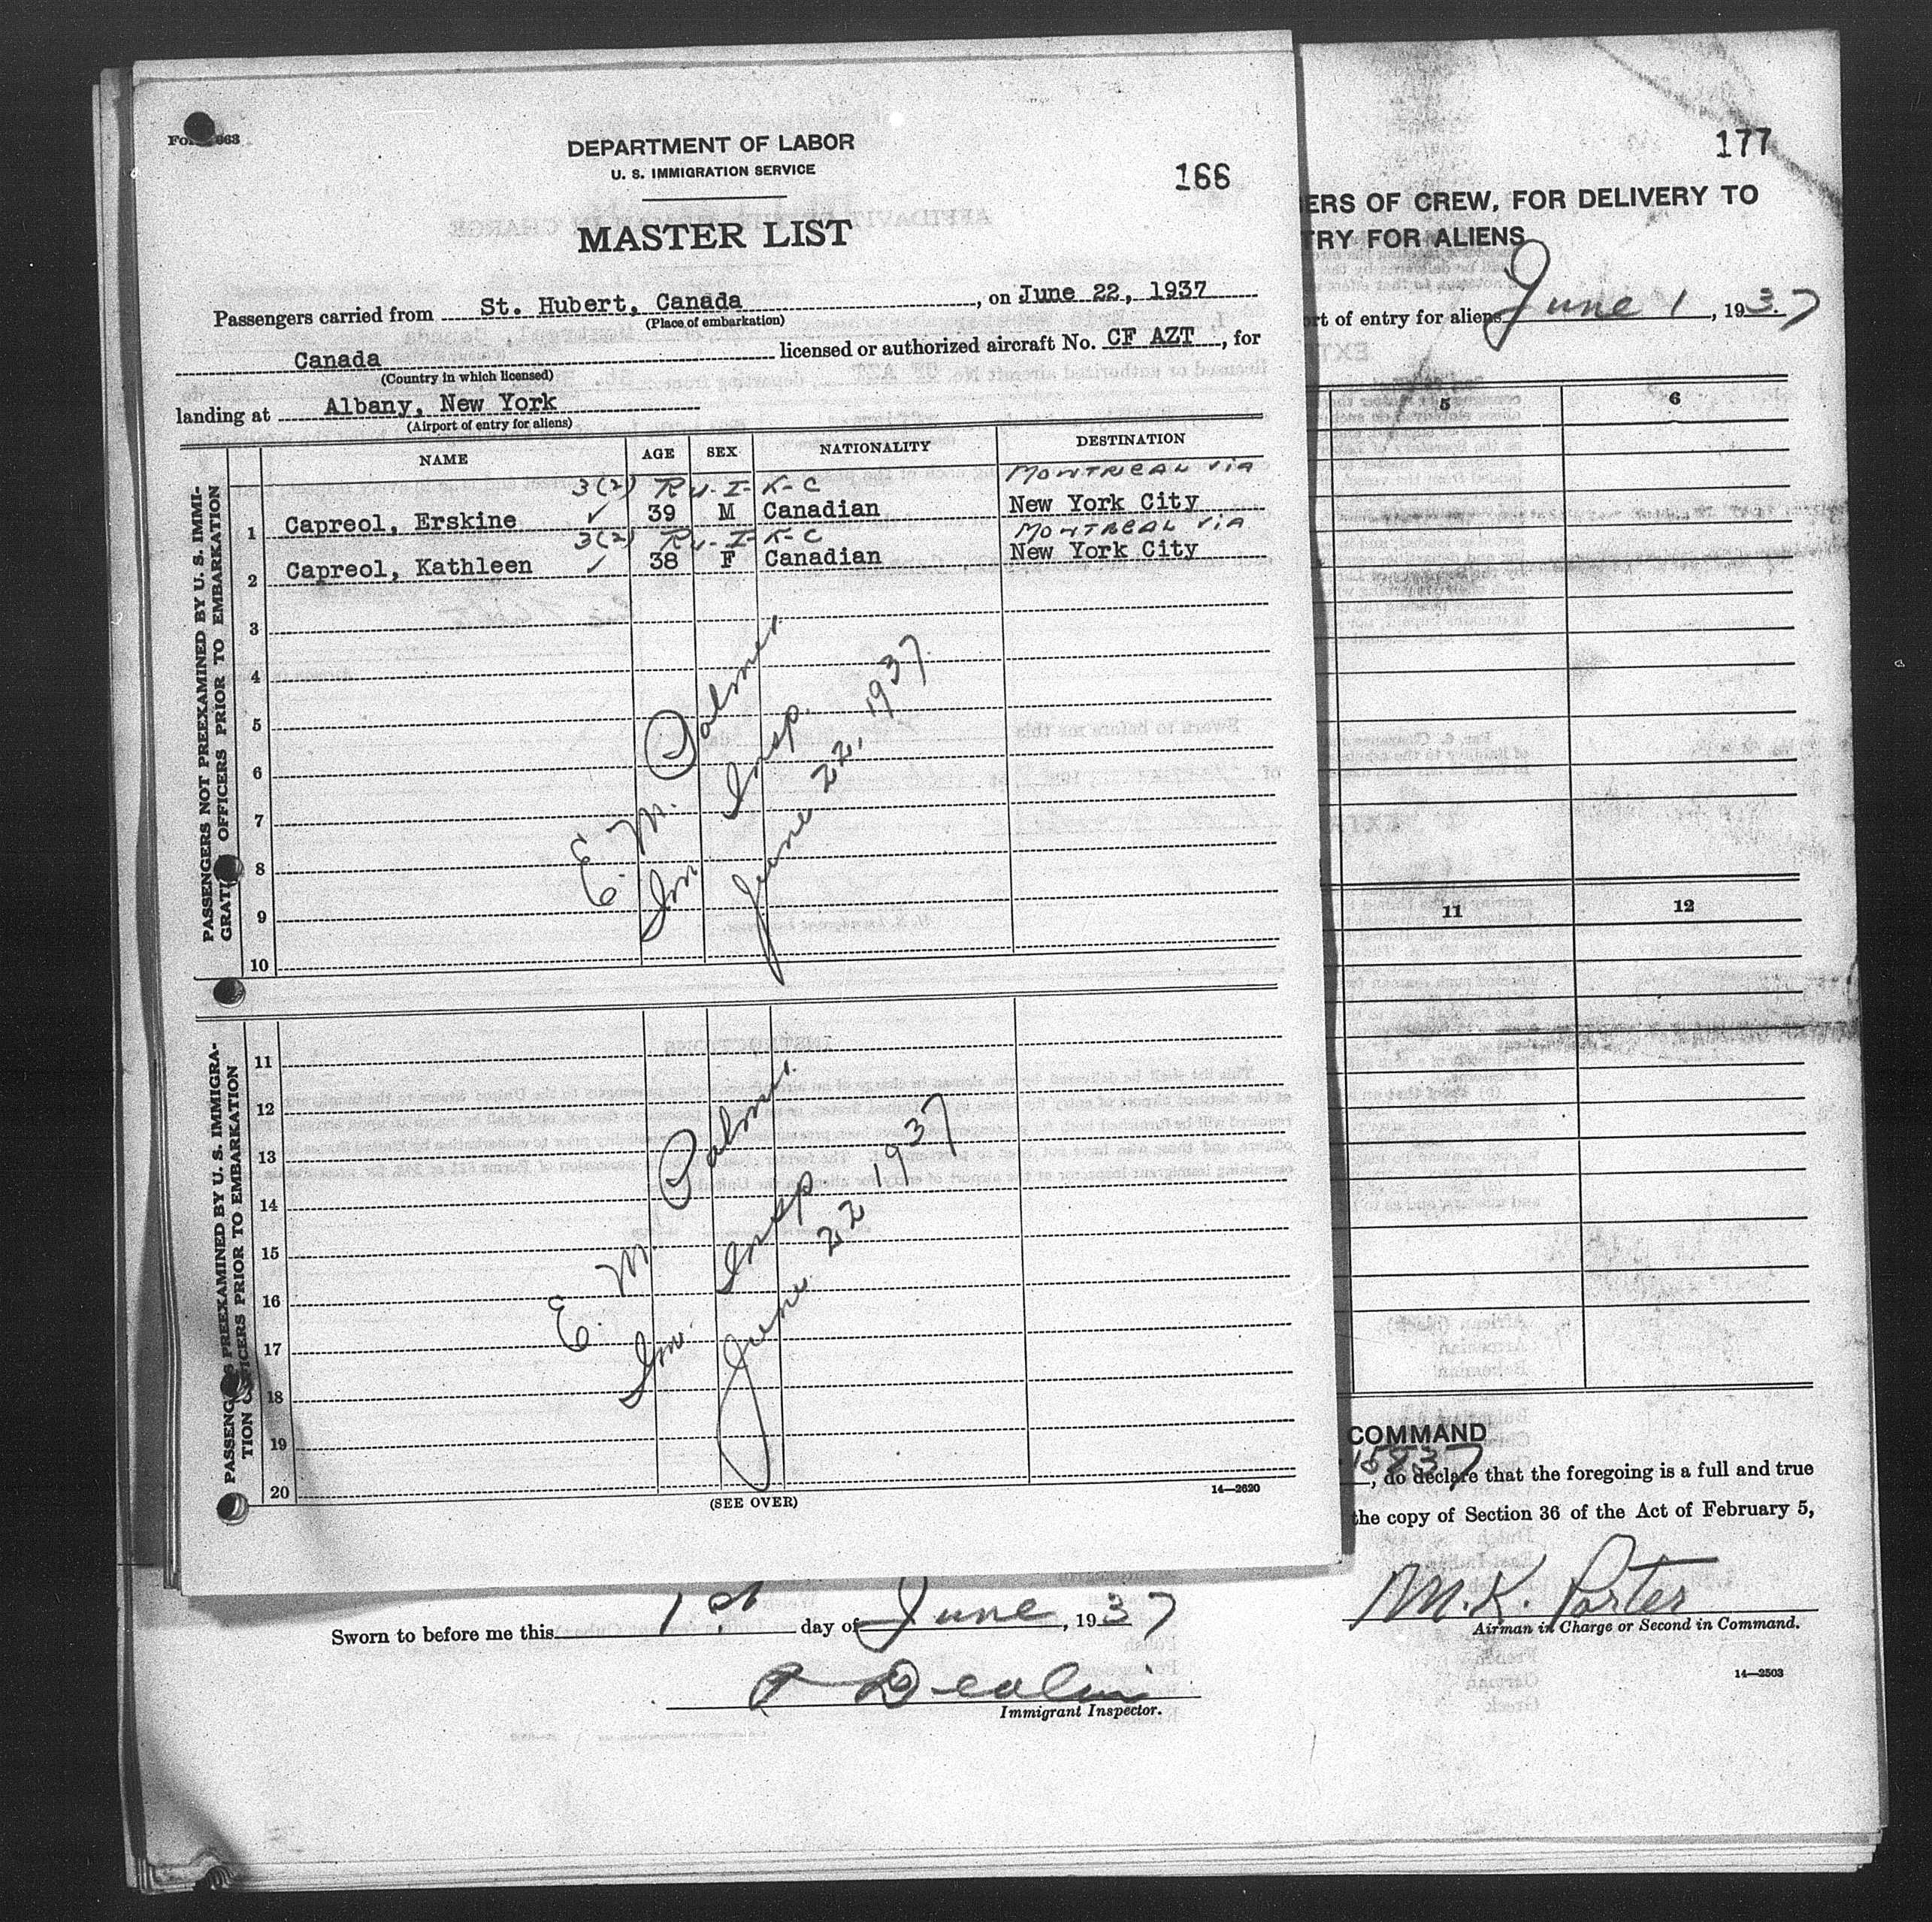 DEPARTMENT OF LABOR
U. S. IMMIGRATION SERVICE
166
MASTER LIST
Passengers carried from St. Hubert, Canada, on June 22, 1937
(Place of embarkation)
Canada licensed or authorized aircraft No. CF AZT, for
(Country in which licensed)
landing at Albany, New York
(Airport of entry for aliens)
NAME AGE SEX NATIONALITY DESTINATION
3(2) R.U.-I- K-C MONTREAL VIA
1 Capreol, Erskine ✓ 39 M Canadian New York City
3(2) R.U.-I- K-C MONTREAL VIA
2 Capreol, Kathleen ✓ 38 F Canadian New York City
3
4
5
6
7
8
9
10
E. M. Palmer
Im Insp.
June 22, 1937.
PASSENGERS NOT PREEXAMINED BY U. S. IMMI-
GRATI OFFICERS PRIOR TO EMBARKATION
11
12
13
14
15
16
17
18
19
20
E. M. Palmer
Im. Insp
June 22 1937
PASSENG S PREEXAMINED BY U. S. IMMIGRA-
TION OFFICERS PRIOR TO EMBARKATION
(SEE OVER)
14—2620
177
ERS OF CREW, FOR DELIVERY TO
TRY FOR ALIENS
rt of entry for aliens June 1, 1937
5 6
11 12
COMMAND
, do declare that the foregoing is a full and true
the copy of Section 36 of the Act of February 5,
M.K. Porter
Airman in Charge or Second in Command.
14—2503
Sworn to before me this 1st day of June, 1937
Immigrant Inspector.